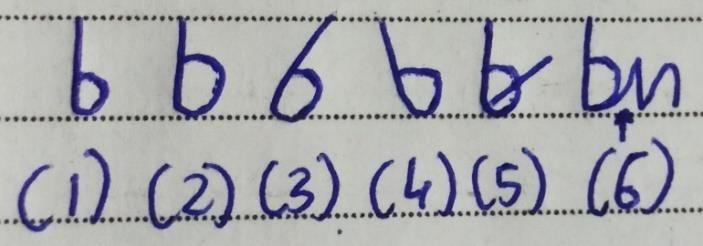 b b 6 b b bn
(1) (2) (3) (4) (5) (6)